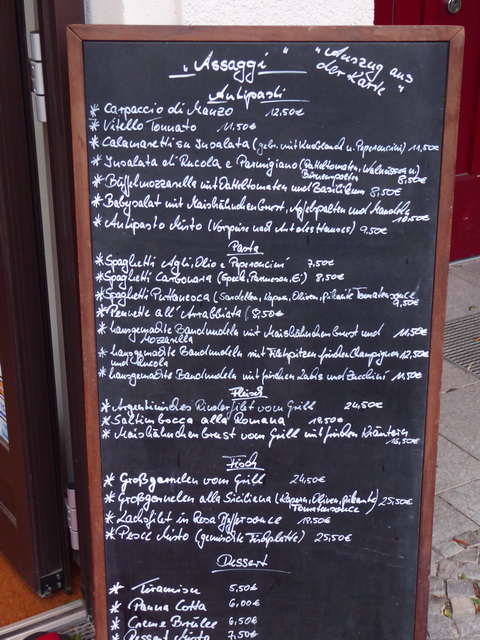 „Assaggi“
"Auszug aus
der Karte"
Antipasti
* Carpaccio di Manzo 12,50€
* Vitello Tonnato 11,50€
* Calamaretti su Insalata (gebr. mit Knoblauch u. Peperoncini) 11,50€
* Insalata di Rucola e Parmigiano (Datteltomaten, Walnüssen u)
Birnenspalten 8,50€
* Büffelmozzarella mit Datteltomaten und Basilikum 8,50€
* Babysalat mit Maishähnchenbrust, Apfelspalten und Mandeln 10,50€
* Antipasto Misto (Vorspeise nach Art des Hauses) 9,50€
Pasta
* Spaghetti Agli, Olio e Peperoncini 7,50€
* Spaghetti Carbonara (Speck, Parmesan, Ei) 8,50€
* Spaghetti Puttanesca (Sardellen, Kapern, Oliven, pikante Tomatensauce 9,50€
* Pennette all'Arrabbiata 8,50€
* hausgemachte Bandnudeln mit Maishähnchenbrust und 11,50€
Mozzarella
* hausgemachte Bandnudeln mit Filetspitzen frischen Champignons 12,50€
und Rucola
* hausgemachte Bandnudeln mit frischen Lachs und Zucchini 11,50€
Fleisch
* Argentinisches Rinderfilet vom Grill 24,50€
* Saltimbocca alla Romana 19,50€
* Maishähnchenbrust vom Grill mit frischen Kräutern
16,50€
Fisch
* Großgarnelen vom Grill 24,50€
* Großgarnelen alla Siciliana (Kapern, Oliven, pikante) 25,50€
Tomatensauce
* Lachsfilet in Rosa Pfeffersauce 19,50€
* Pesce Misto (gemischte Fischplatte) 25,50€
Dessert
* Tiramisu 5,50€
* Panna Cotta 6,00€
* Creme Brûlée 6,50€
* Dessert Misto 7,50€